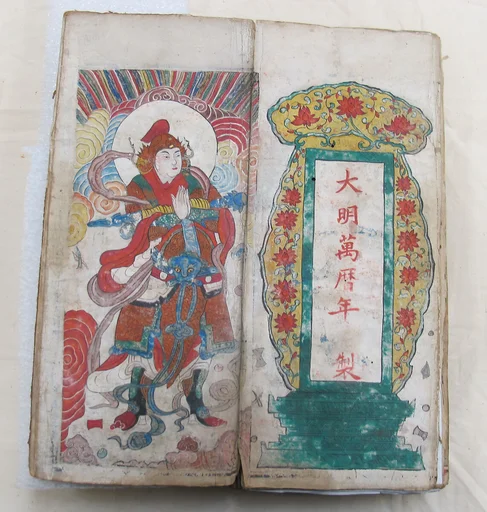 大明萬曆年 製